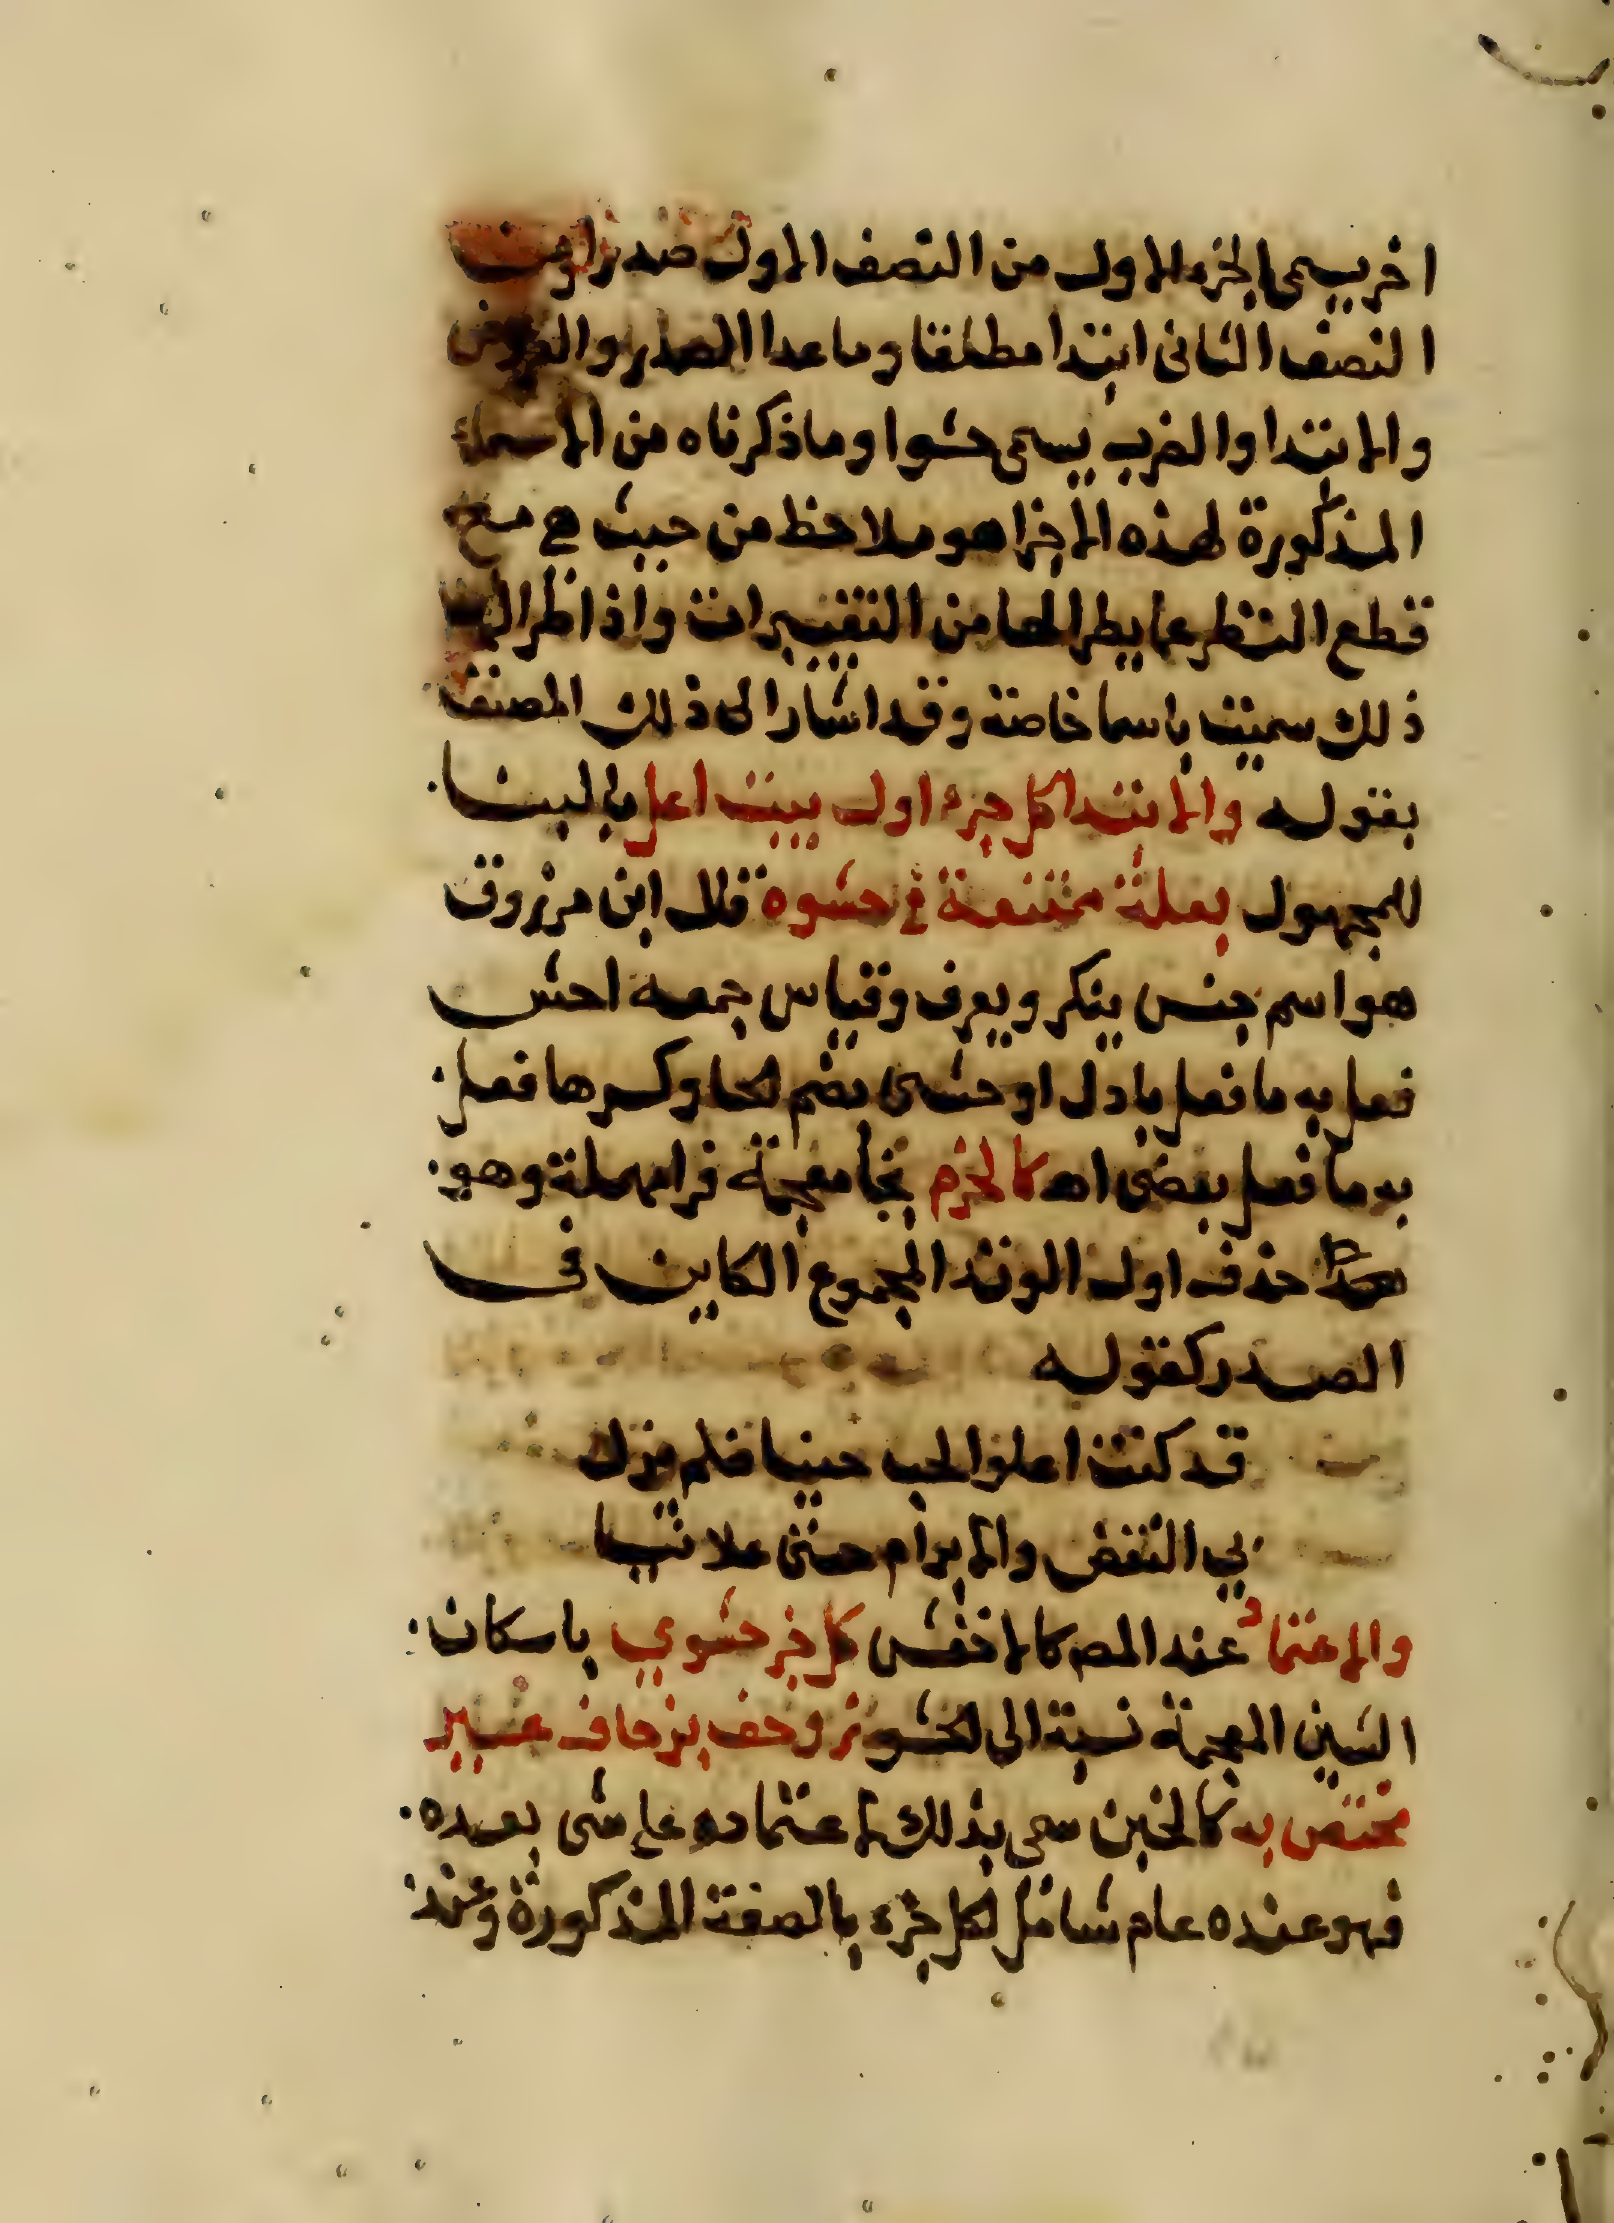 اخر يسمى الجزء الاول من النصف الاول صدرا ومن
النصف الثانى ابتدا مطلقا وما عدا الصدر والعروض
والابتدا والضرب يسمى حشوا وما ذكرناه من الاسماء
المذكورة لهذه الاجزا هو ملاحظ من حيث هي مع
قطع النظر عما يطرا لها من التغييرات واذا طرا لها
ذلك سميت باسما خاصة وقد اشار الى ذلك المصنف
بقوله والابتدا كل جزء اول بيت اعل بالبنا
للمجهول بعلة ممتنعة في حشوه قال ابن مرزوق
هو اسم جنس ينكر ويعرف وقياس جمعه احش
فعل به ما فعل بادل او حشى بضم الحا وكسرها فعل
به ما فعل بعضى اه كالخرم بخا معجمة فرا مهملة وهو
حذف اول الوتد المجموع الكاين فى
الصدر كقوله
قد كنت اعلوا الحب حينا فلم يزل
بي النقض والابرام حتى علانيا
والاعتماد عند المص كالاخفش كل جزء حشوي باسكان
الشين المعجمة نسبة الى الحشو زوحف بزحاف غير
مختص به كالخبن سمى بذلك لاعتماده على شى بعده
فهو عنده عام شامل لكل جزء بالصفة المذكورة وعند